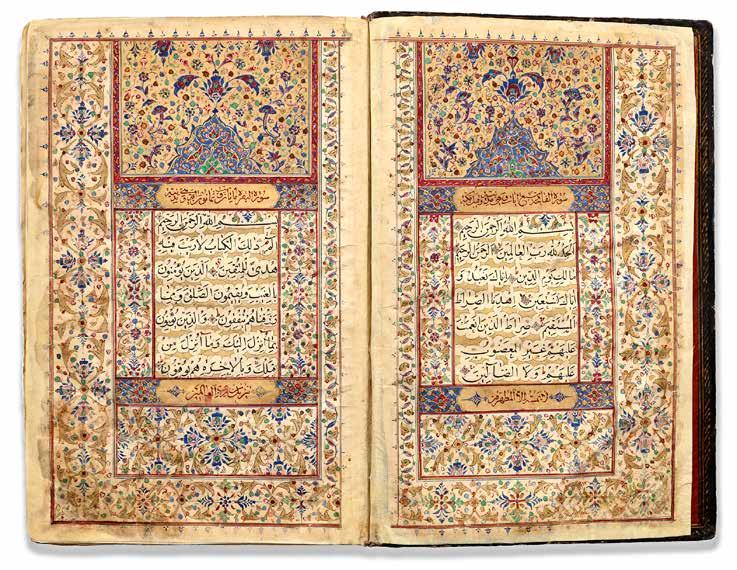 سورة الفاتحة سبع آيات
بسم الله الرحمن الرحيم
الحمد لله رب العالمين الرحمن الرحيم
مالك يوم الدين اياك نعبد و
اياك نستعين اهدنا الصراط
المستقيم صراط الذين انعمت
عليهم غير المغضوب
عليهم ولا الضالين
لا يمسه الا المطهرون
سورة البقرة
بسم الله الرحمن الرحيم
الم ذلك الكتاب لا ريب فيه
هدى للمتقين الذين يؤمنون
بالغيب ويقيمون الصلوة ومما
رزقناهم ينفقون والذين يؤمنون
بما انزل اليك وما انزل من
قبلك وبالاخرة هم يوقنون
تنزيل من رب العالمين